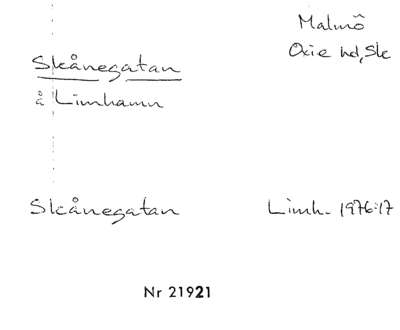 Malmö
Skånegatan
Oxie hd, Sk
å Limhamn
Skånegatan Limh. 1976:17
Nr 21921